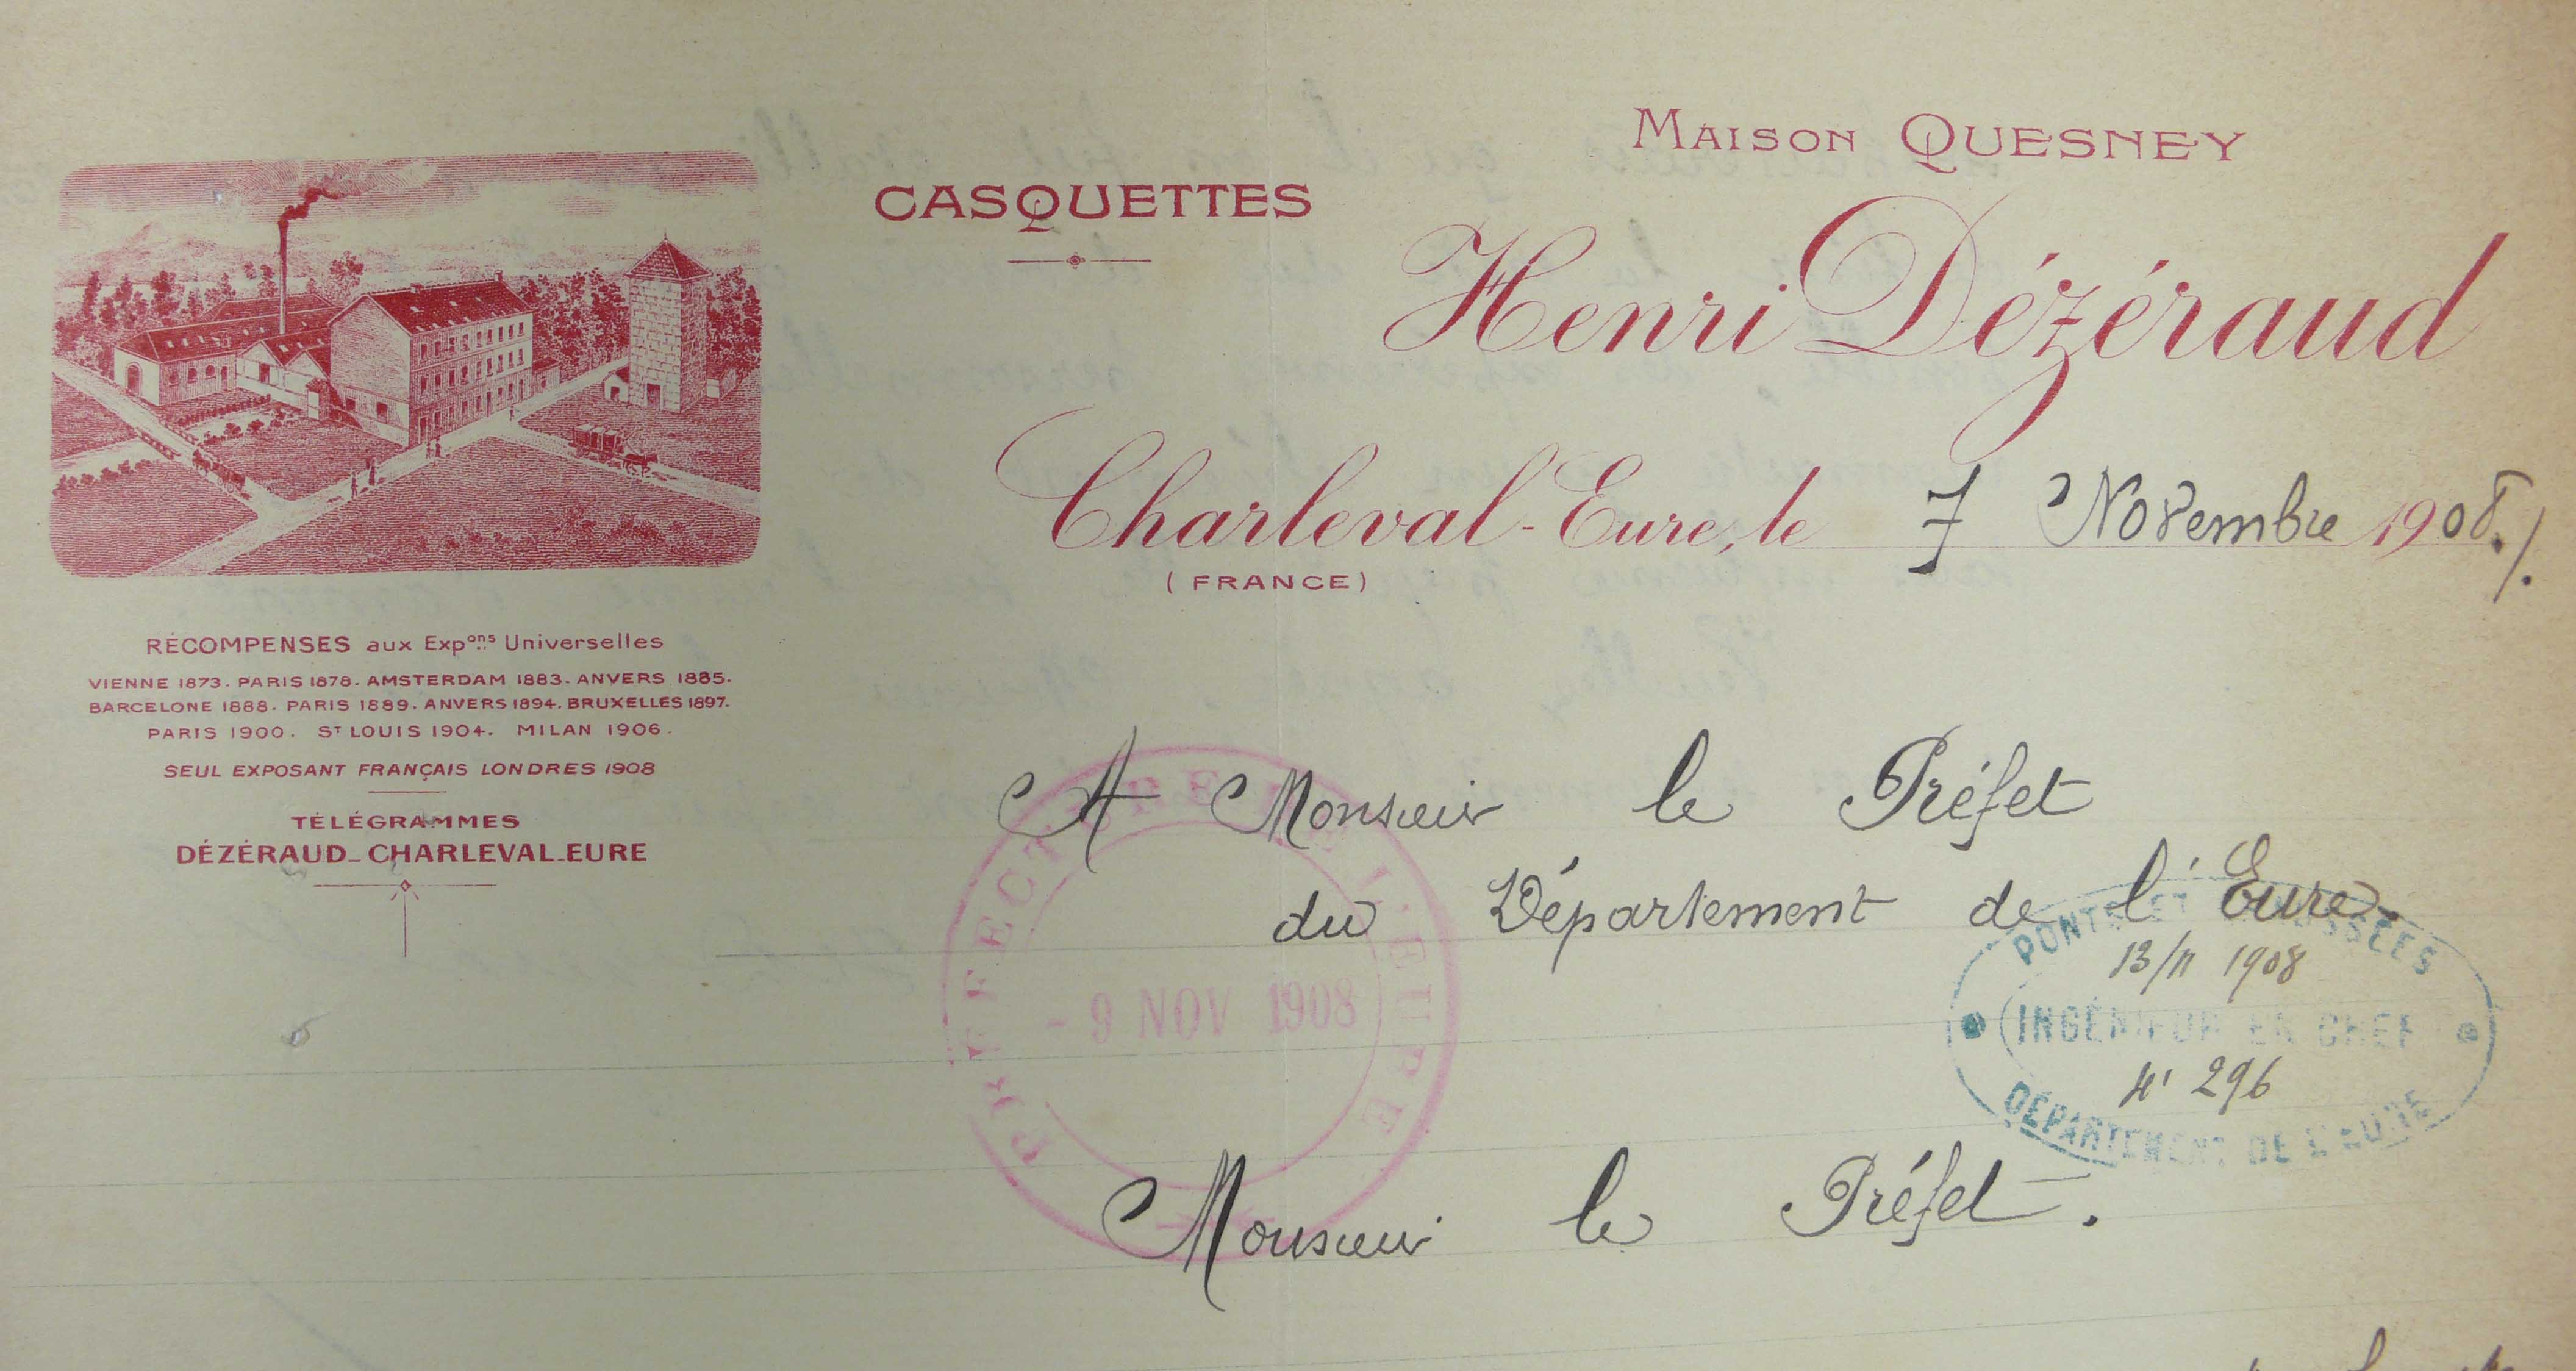 MAISON QUESNEY
CASQUETTES
Henri Dézéraud
Charleval-Eure, le 7 Novembre 1908./.
(FRANCE)
RÉCOMPENSES aux Expons Universelles
VIENNE 1873. PARIS 1878. AMSTERDAM 1883. ANVERS 1885.
BARCELONE 1888. PARIS 1889. ANVERS 1894. BRUXELLES 1897.
PARIS 1900. ST LOUIS 1904. MILAN 1906.
SEUL EXPOSANT FRANÇAIS LONDRES 1908
TÉLÉGRAMMES
DÉZÉRAUD_CHARLEVAL_EURE
A Monsieur le Préfet
du Département de l'Eure.
PREFECTURE DE L'EURE
- 9 NOV 1908
PONTS ET CHAUSSÉES
13/11 1908
INGÉNIEUR EN CHEF
296
DÉPARTEMENT DE L'EURE
Monsieur le Préfet.